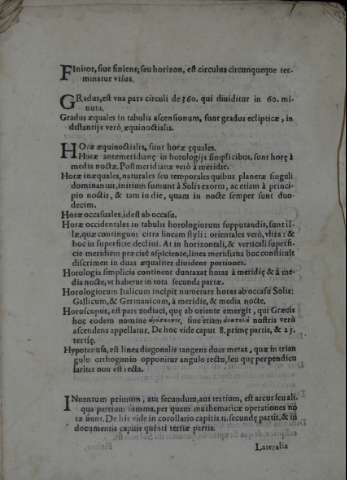 FInitor, siue finiens, seu horizon, est circulus circunqueque ter-
minatur visus.
GRadus, est vna pars circuli de 360. qui diuiditur in 60. mi-
nuta.
Gradus æquales in tabulis ascensionum, sunt gradus eclipticæ, in
distantijs verò, æquinoctialis.
HOræ æquinoctialis, sunt horæ ęquales.
Horæ antemeridianę in horologijs simplicibus, sunt horę à
media nocte. Postmeridianæ verò à meridie.
Horæ inæquales, naturales seu temporales quibus planetæ singuli
dominantur, initium sumunt à Solis exortu, ac etiam à princi-
pio noctis, & tam in die, quam in nocte semper sunt duo-
decim.
Horæ occasuales, id est ab occasu.
Horæ occidentales in tabulis horologiorum supputandis, sunt il-
læ, quæ contingunt citra lineam styli: orientales verò, vltra: &
hoc in superficie decliui. At in horizontali, & verticali superfi-
cie meridiem præcisè aspiciente, linea meridiana hoc constituit
discrimen in duas æqualiter diuidens portiones.
Horologia simplicia continent duntaxat horas à meridię & à me-
dia nocte, vt habetur in tota secunda parte.
Horologiorum Italicum incipit numerare horas ab occasu Solis:
Gallicum, & Germanicum, à meridie, & media nocte.
Horoscopus, est pars zodiaci, quę ab oriente emergit, qui Græcis
hoc eodem nomine siue etiam nostris verò
ascendens appellatur. De hoc vide caput 8. primę partis, & 25.
tertię.
Hypotenusa, est linea diagonalis tangens duas metas, quæ in trian
gulo orthogonio opponitur angulo recto, seu quę perpendicu
laris non est recta.
INuentum primum, aut secundum, aut tertium, est arcus seu ali-
qua portium summa, per quam mathematicæ operationes no
ta sunt. De his vide in corollario capitis 11. secundę partis, & in
documentis capitis quinti tertiæ partis.
Lateralia